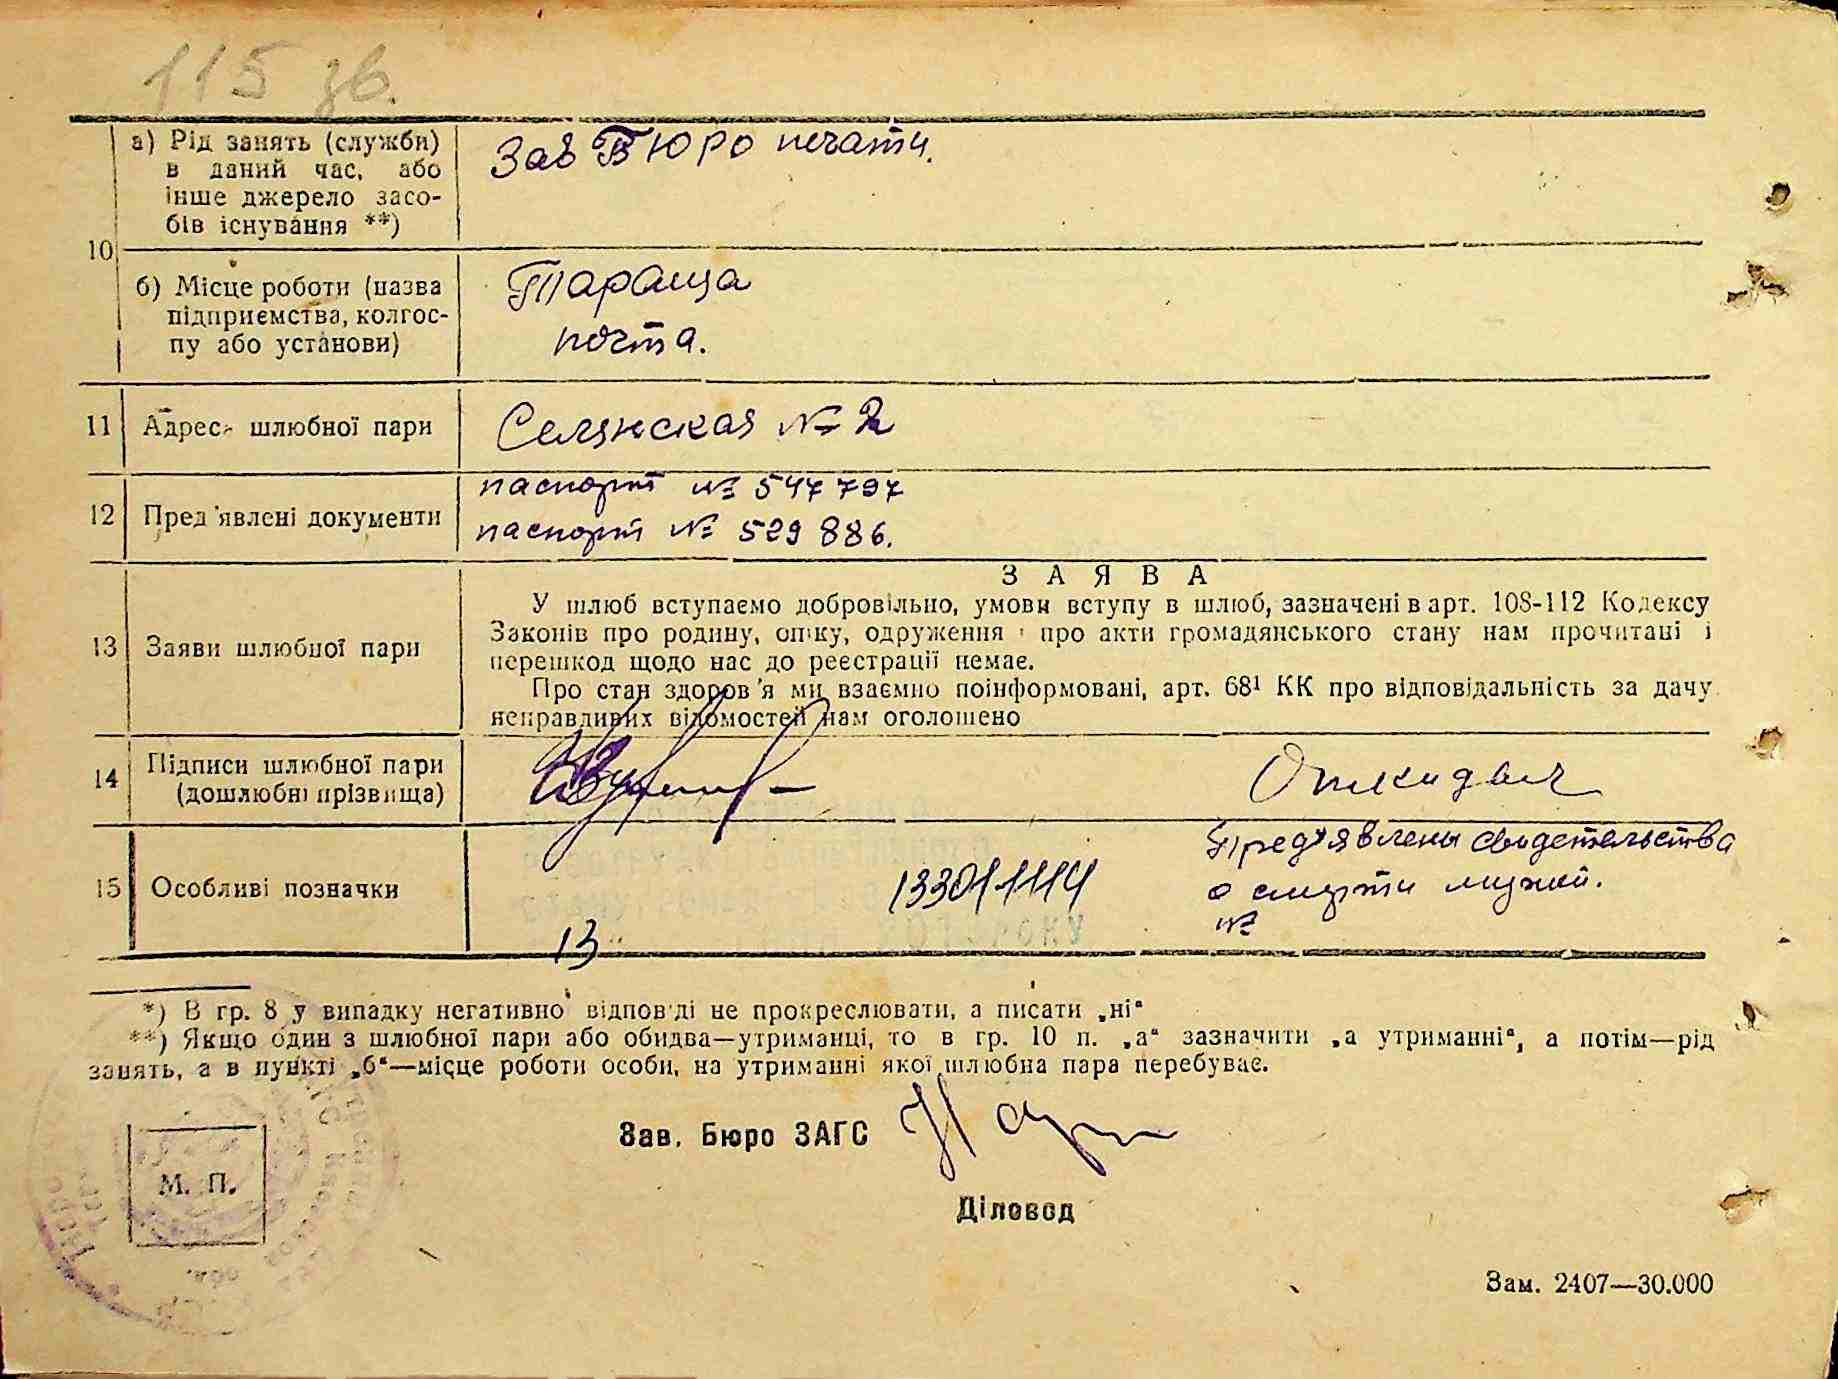 115 зв.
а) Рід занять (служби)
в даний час, або
інше джерело засо-
бів існування **)
Зав Бюро печати.
10
б) Місце роботи (назва
підприємства, колгос-
пу або установи)
Тараща
почта.
11 Адреса шлюбної пари
Селянская № 2
12 Пред'явлені документи
паспорт № 547797
паспорт № 529886.
13 Заяви шлюбної пари
ЗАЯВА
У шлюб вступаємо добровільно, умови вступу в шлюб, зазначені в арт. 108-112 Кодексу
Законів про родину, опіку, одруження і про акти громадянського стану нам прочитані і
перешкод щодо нас до реєстрації немає.
Про стан здоров'я ми взаємно поінформовані, арт. 68¹ КК про відповідальність за дачу
неправдивих відомостей нам оголошено
14 Підписи шлюбної пари
(дошлюбні прізвища)
15 Особливі позначки
13
133011114
Предъявлены свидетельства
о смерти мужей.
№
*) В гр. 8 у випадку негативної відповіді не прокреслювати, а писати „ні“
**) Якщо один з шлюбної пари або обидва—утриманці, то в гр. 10 п. „а“ зазначити „а утриманні“, а потім—рід
занять, а в пункті „б“—місце роботи особи, на утриманні якої шлюбна пара перебуває.
Зав. Бюро ЗАГС
М. П.
Діловод
Зам. 2407—30.000